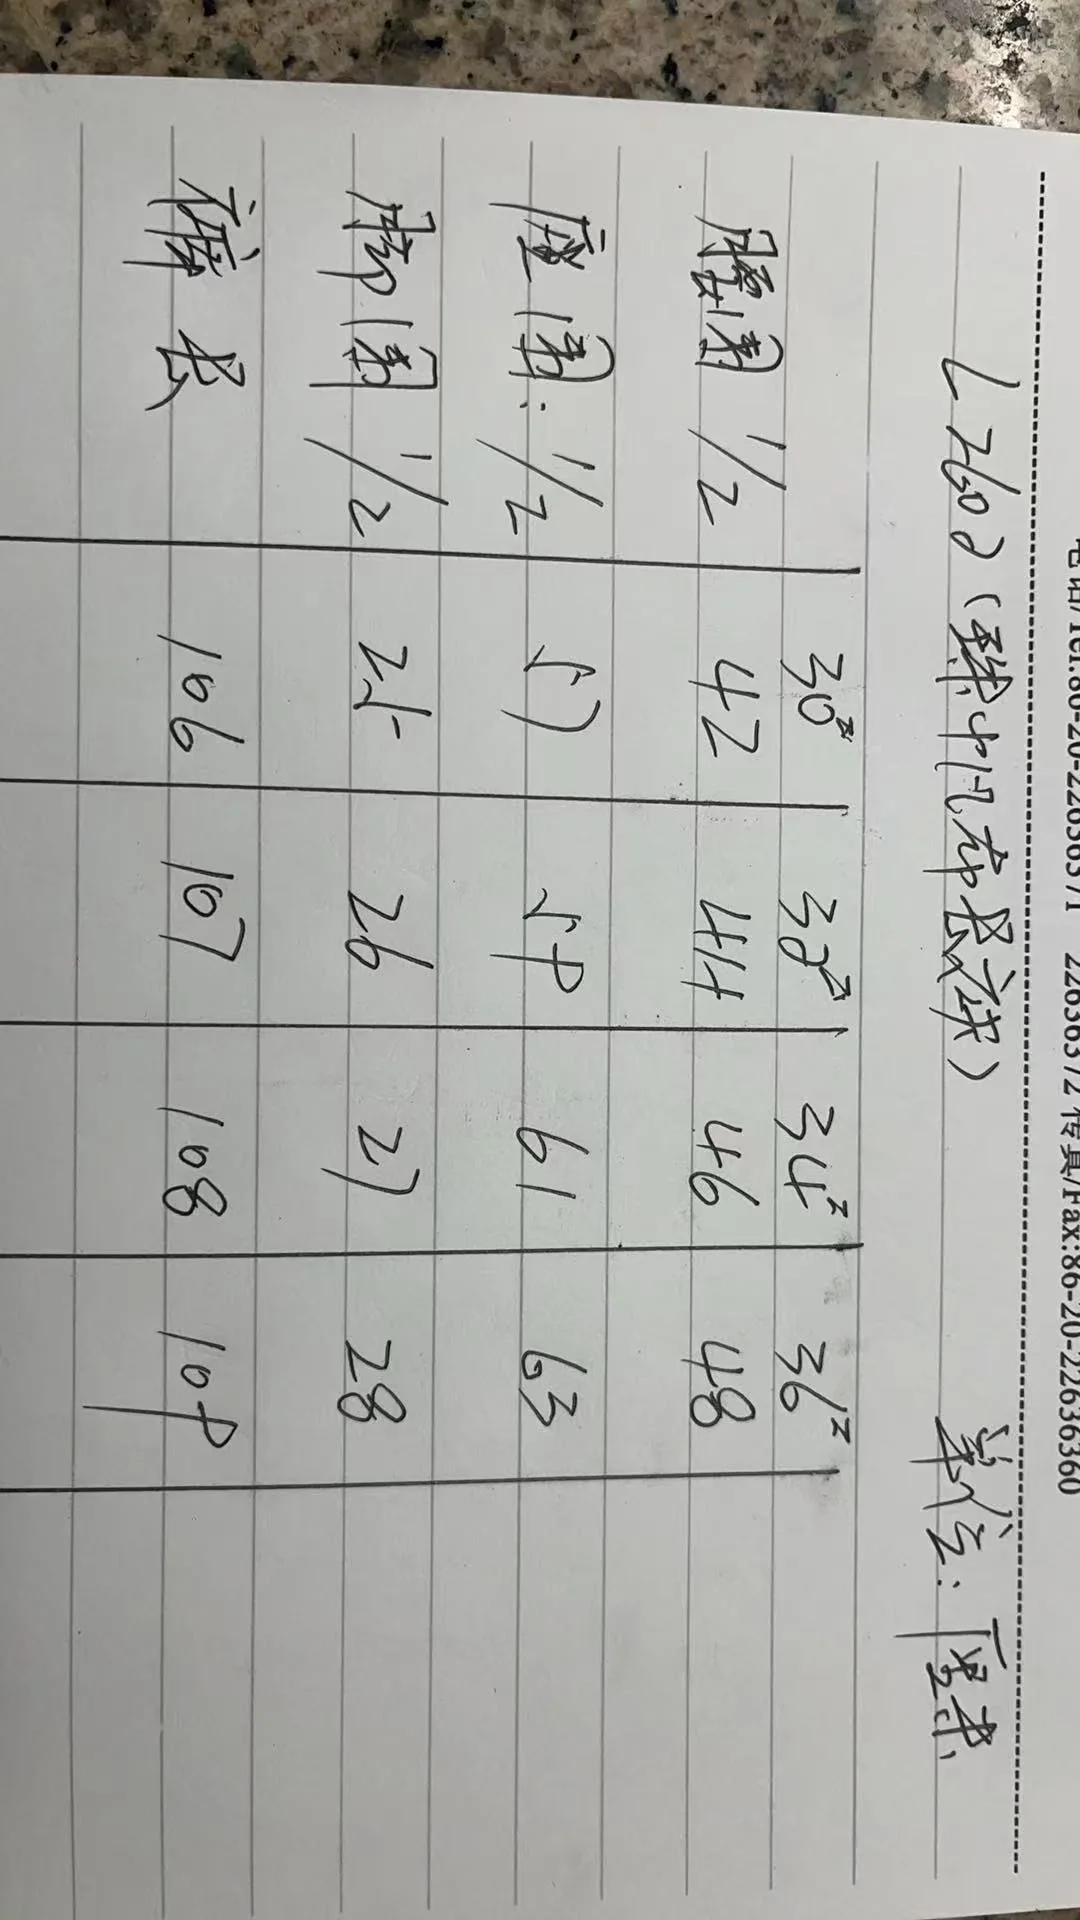 电话/Tel:86-20-22636371 22636372 传真/Fax:86-20-22636360
L2602
30² 32² 34² 36²
腰围 1/2 42 44 46 48
座围: 1/2 57 59 61 63
脚围 1/2 25 26 27 28
裤长 106 107 108 109